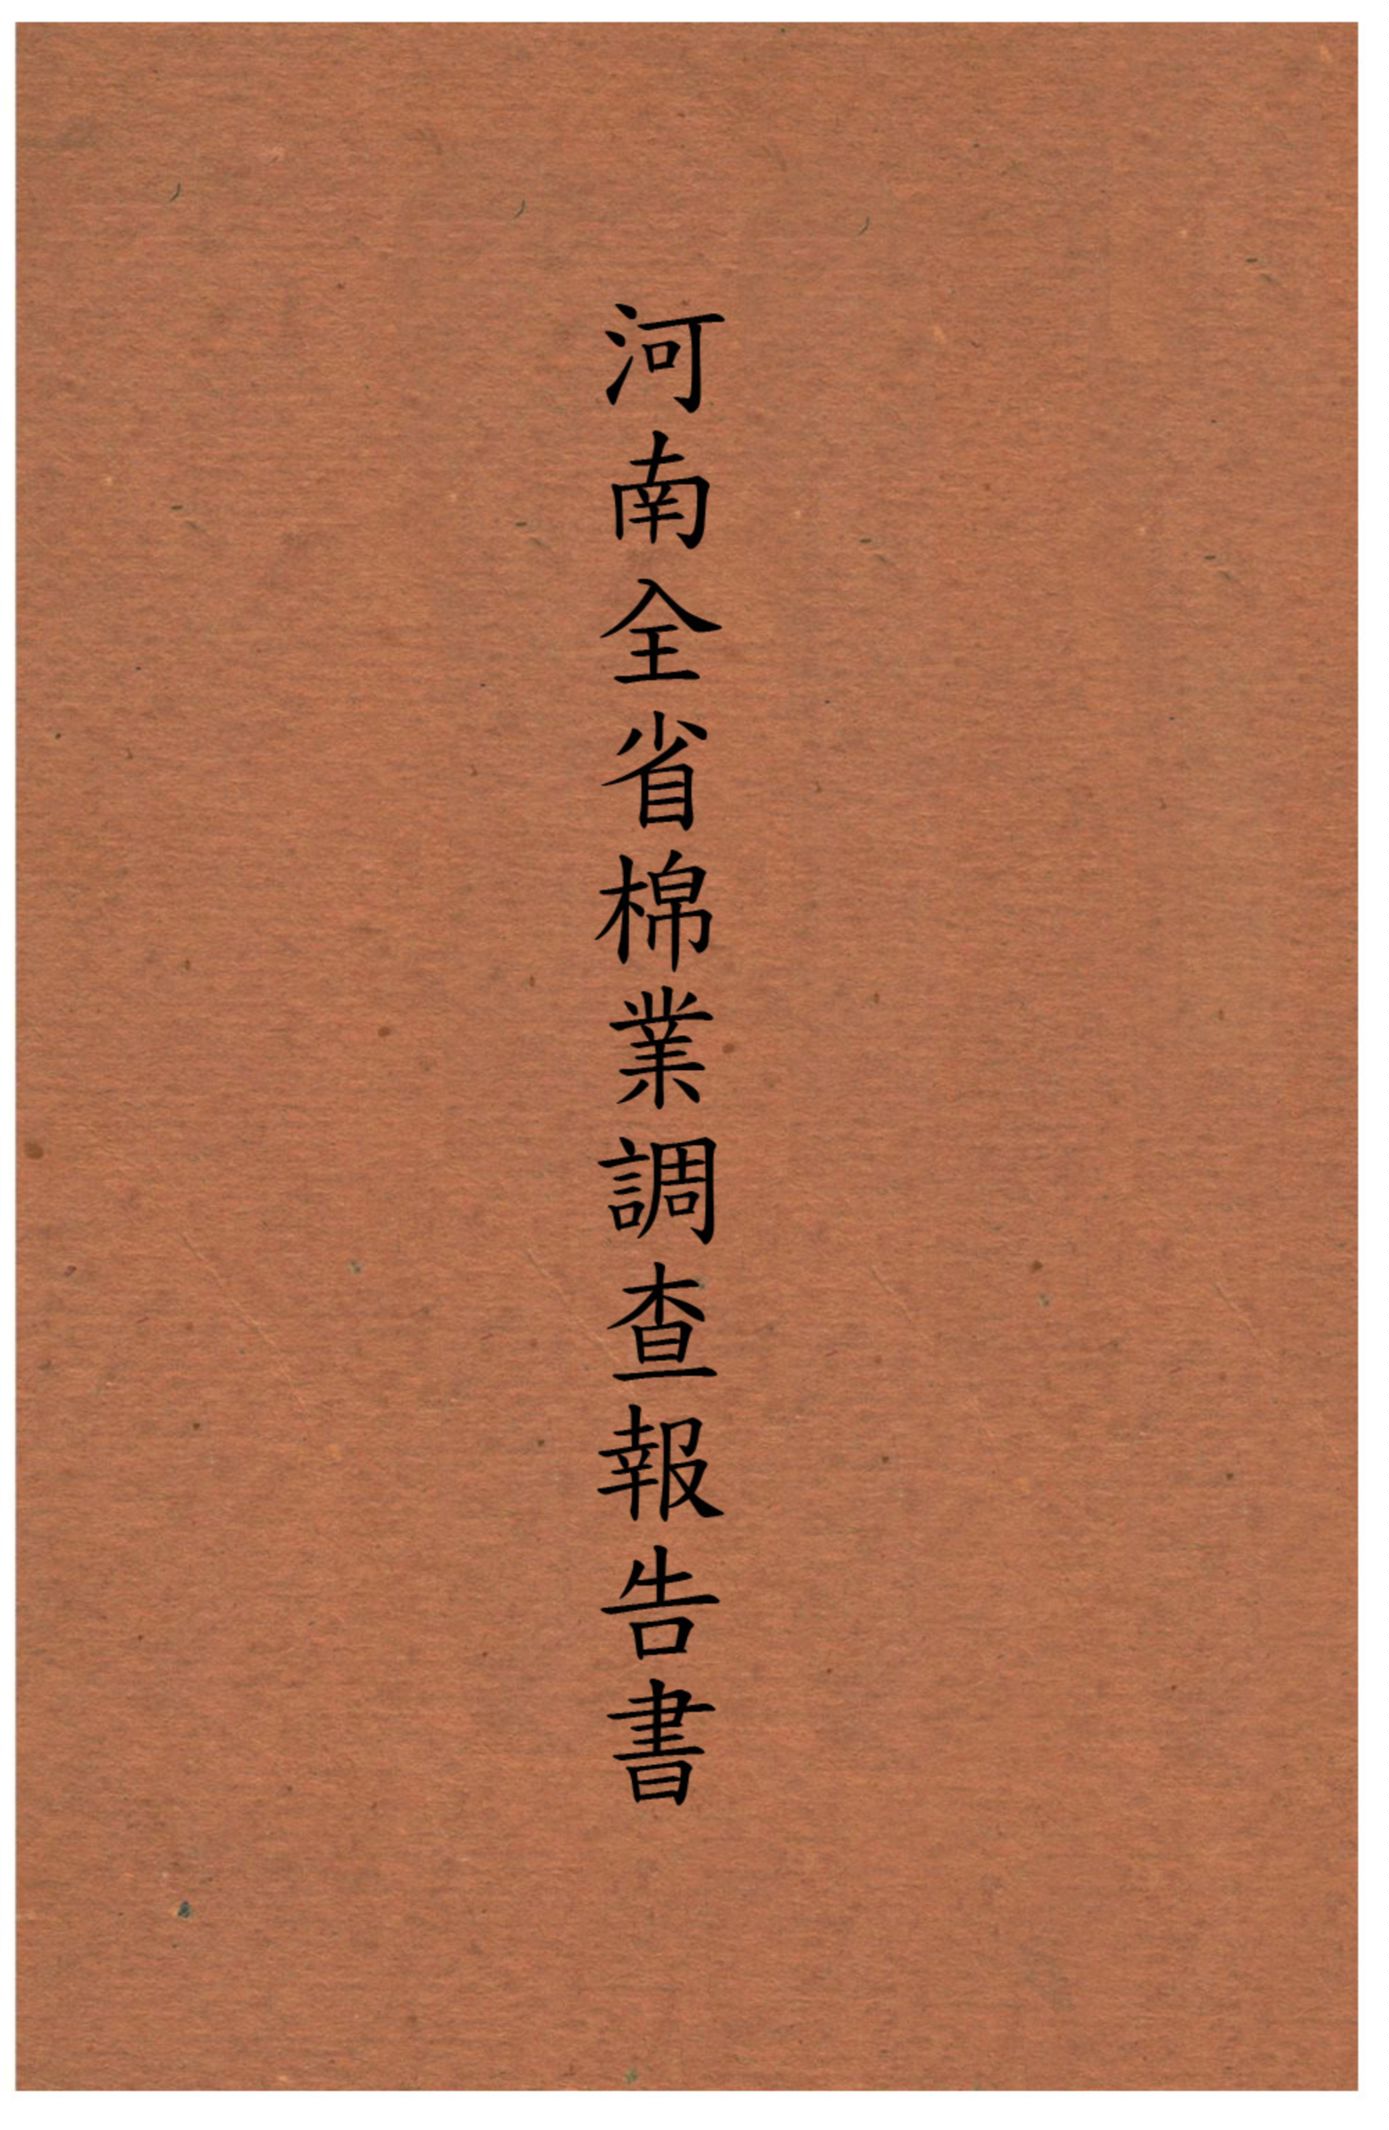 河南全省棉業調查報告書